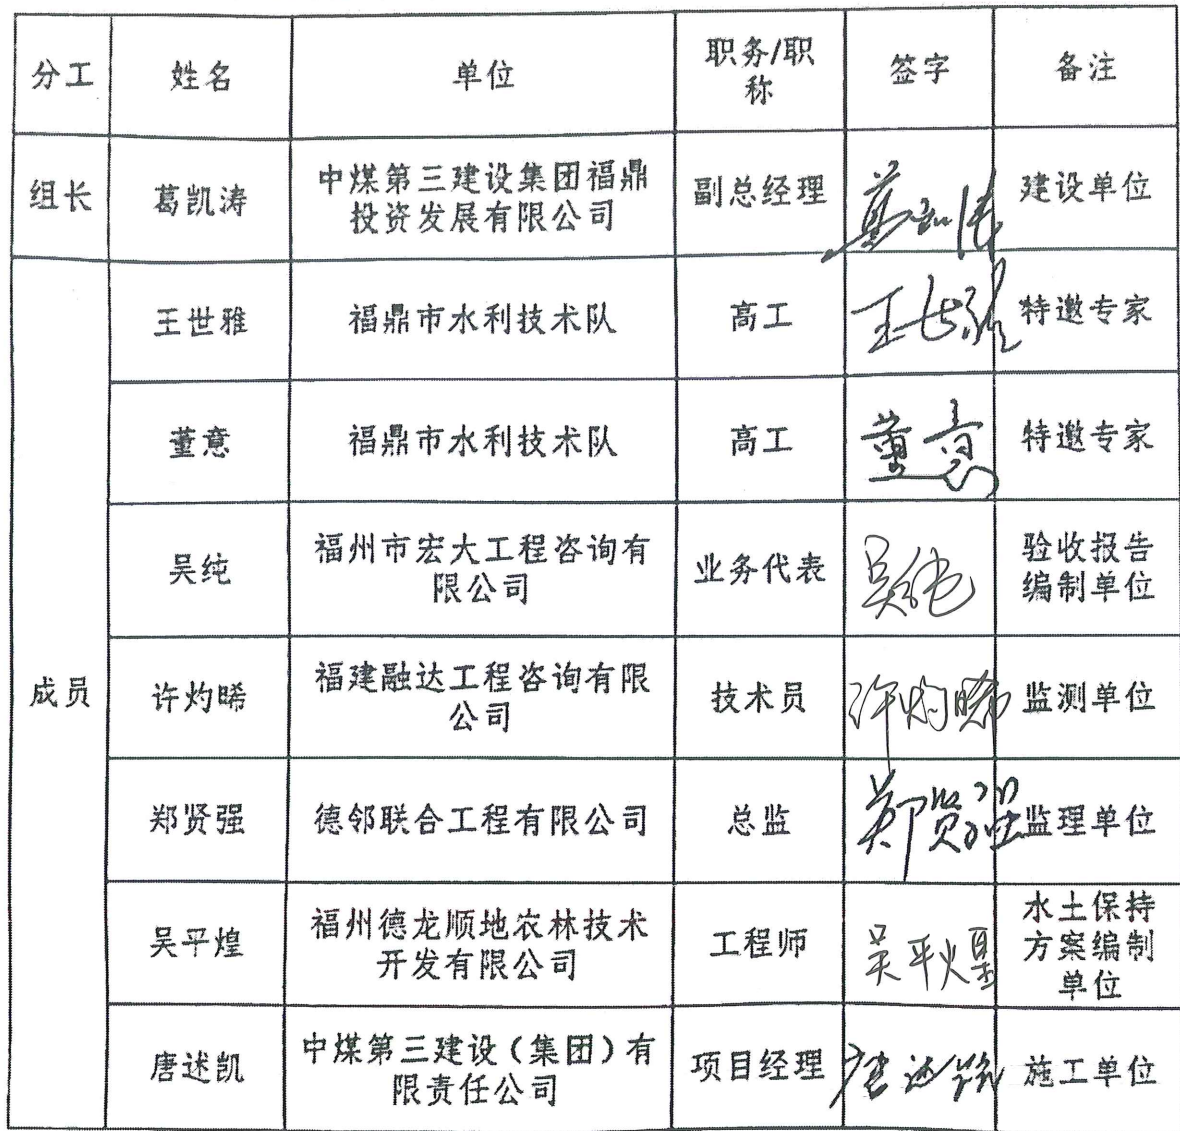 分工 姓名 单位 职务/职称 签字 备注
组长 葛凯涛 中煤第三建设集团福鼎投资发展有限公司 副总经理 葛凯涛 建设单位
成员 王世雅 福鼎市水利技术队 高工 王世雅 特邀专家
董意 福鼎市水利技术队 高工 董意 特邀专家
吴纯 福州市宏大工程咨询有限公司 业务代表 吴纯 验收报告编制单位
许灼晞 福建融达工程咨询有限公司 技术员 许灼晞 监测单位
郑贤强 德邻联合工程有限公司 总监 郑贤强 监理单位
吴平煌 福州德龙顺地农林技术开发有限公司 工程师 吴平煌 水土保持方案编制单位
唐述凯 中煤第三建设（集团）有限责任公司 项目经理 唐述凯 施工单位